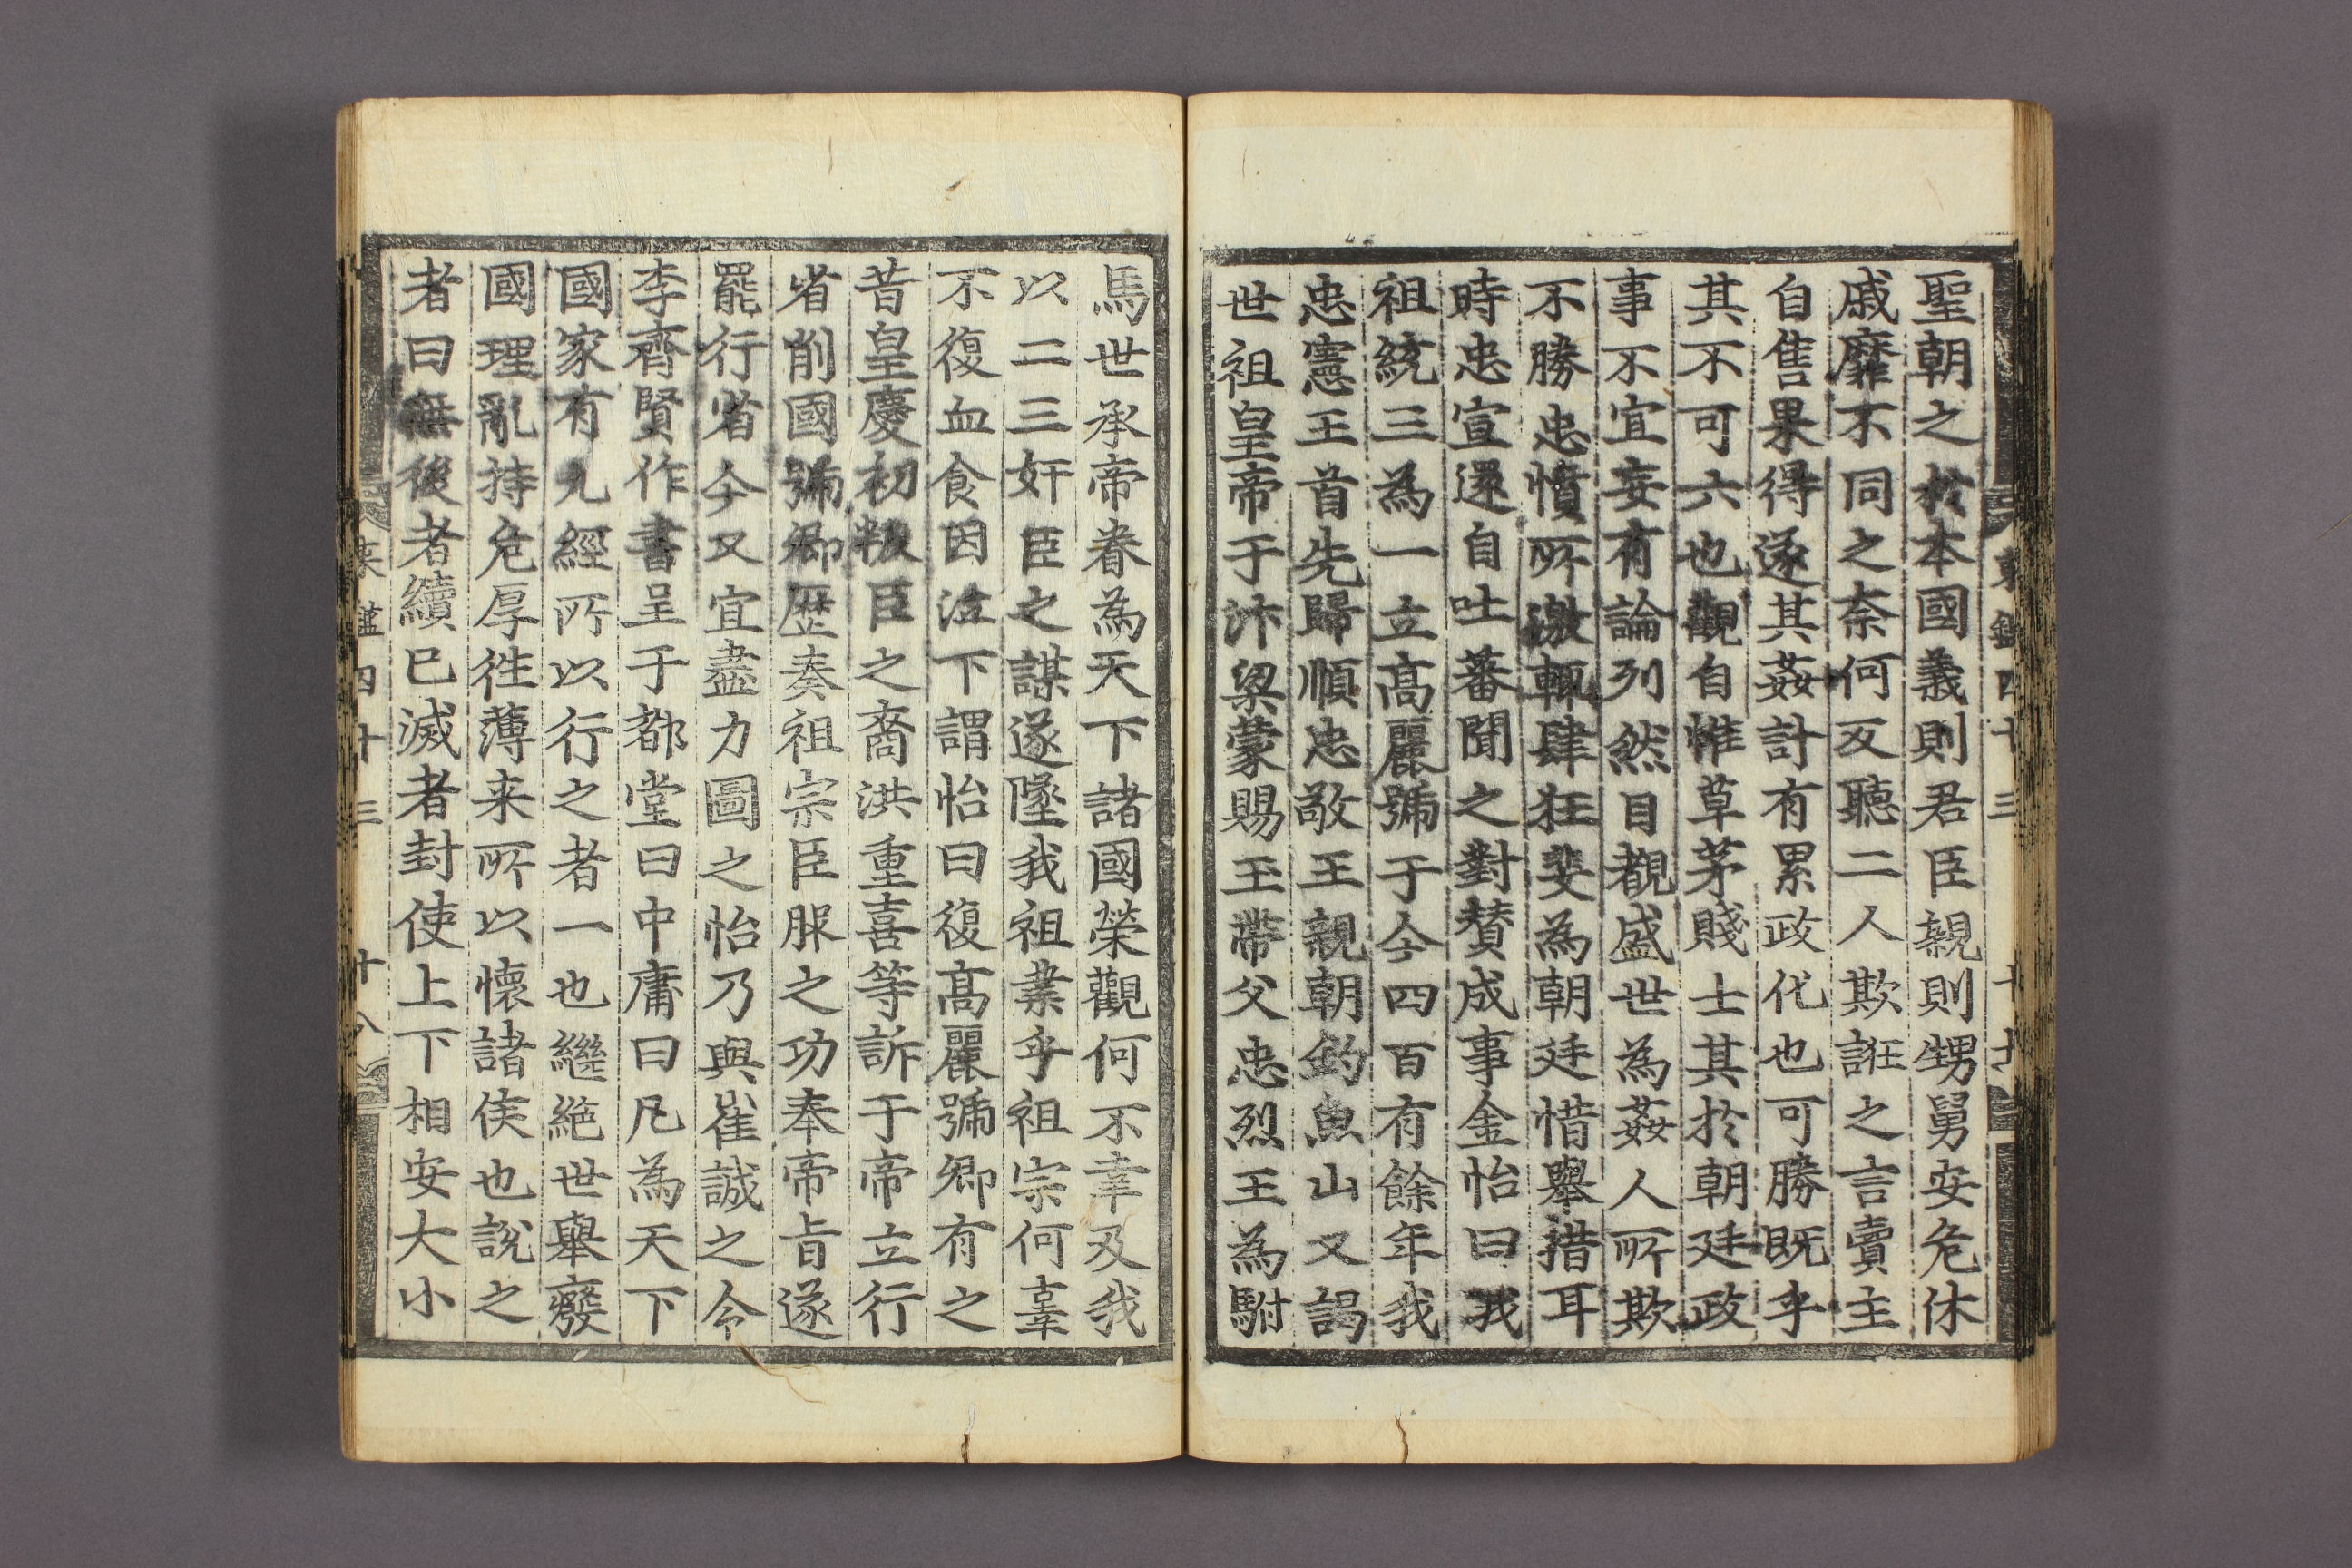 聖朝之於本國義則君臣親則甥舅安危休
戚靡不同之奈何反聽二人欺誑之言賣主
自售果得遂其姦計有累政化也可勝既乎
其不可六也觀自惟草茅賤士其於朝廷政
事不宜妄有論列然目覩盛世為姦人所欺
不勝忠憤所激輒肆狂斐為朝廷惜舉措耳
時忠宣還自吐蕃聞之對賛成事金怡曰我
祖統三為一立髙麗號于今四百有餘年我
忠憲王首先歸順忠敬王親朝釣魚山又謁
世祖皇帝于汴梁蒙賜玉帶父忠烈王為駙
東鑑四十三 十七
馬世承帝眷為天下諸國榮觀何不幸及我
以二三奸臣之謀遂墜我祖業乎祖宗何辜
不復血食因泣下謂怡曰復髙麗號卿有之
昔皇慶初叛臣之裔洪重喜等訴于帝立行
省削國號卿歷奏祖宗臣服之功奉帝旨遂
罷行省今又宜盡力圖之怡乃與崔誠之令
李齊賢作書呈于都堂曰中庸曰凡為天下
國家有九經所以行之者一也繼絶世舉廢
國理亂持危厚徃薄来所以懷諸侯也說之
者曰無後者續已滅者封使上下相安大小
東鑑四十三 十八